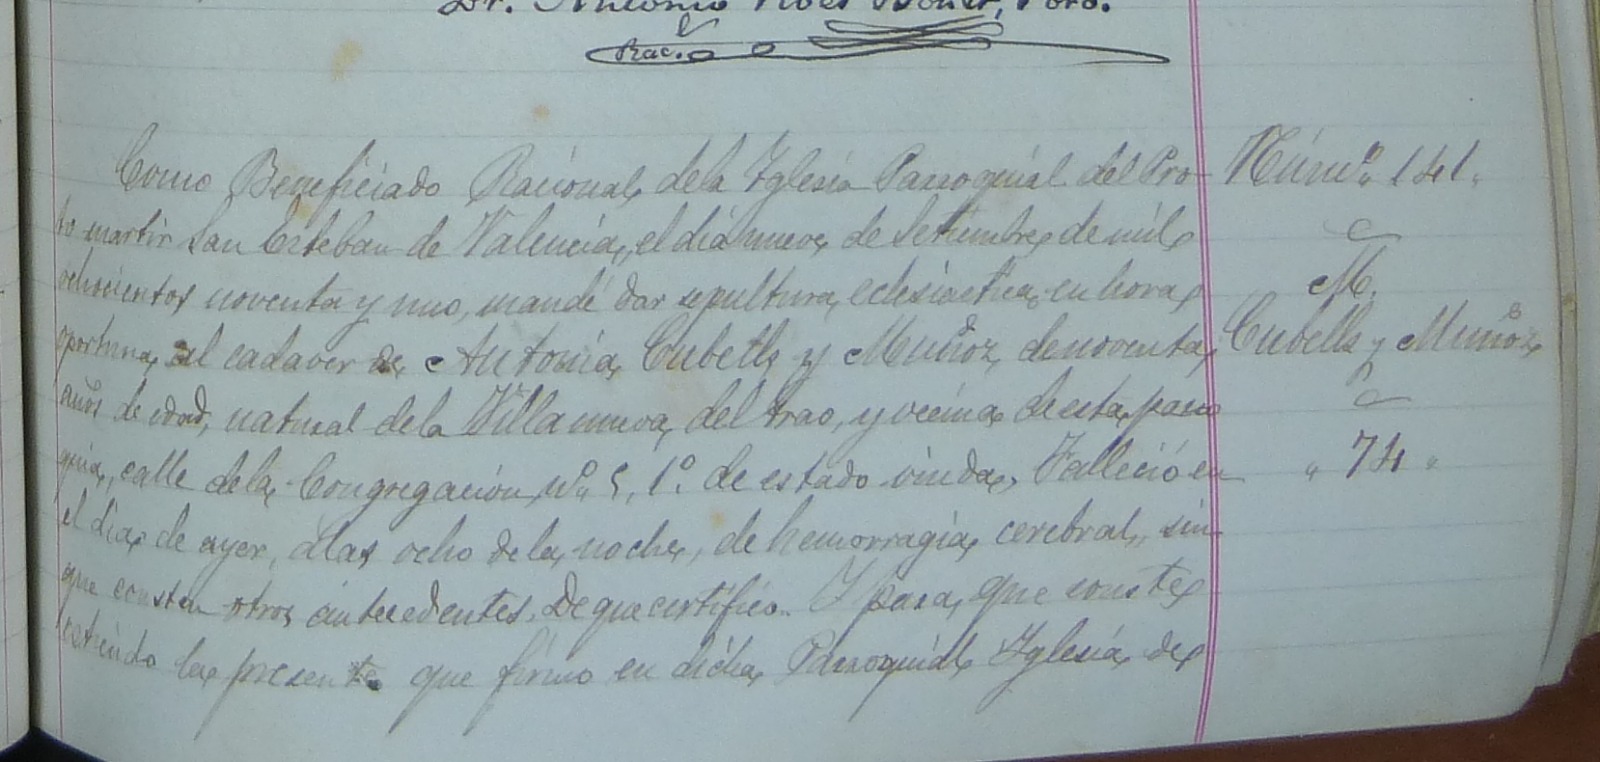 Dr. Antonio Ribes Bonet, Pbro.
Rac.o
Como Beneficiado Racional de la Yglesia Parroquial del Pro-
to martir San Esteban de Valencia, el dia nueve de Setiembre de mil
ochocientos noventa y uno, mandé dar sepultura eclesiastica en hora
oportuna, al cadaver de Antonia Cubells y Muñoz, de noventa
años de edad, natural de la Villanueva del Grao, y vecina de esta parro
quia, calle de la Congregación, nº 5, 1º. de estado viuda. Falleció en
el dia de ayer, alas ocho de la noche, de hemorragia cerebral, sin
que consten otros antecedentes. De que certifico. Y para que conste
extiendo la presente que firmo en dicha Parroquial Yglesia de
Núm.º 141.
M.
Cubells y Muñoz
" 74 "